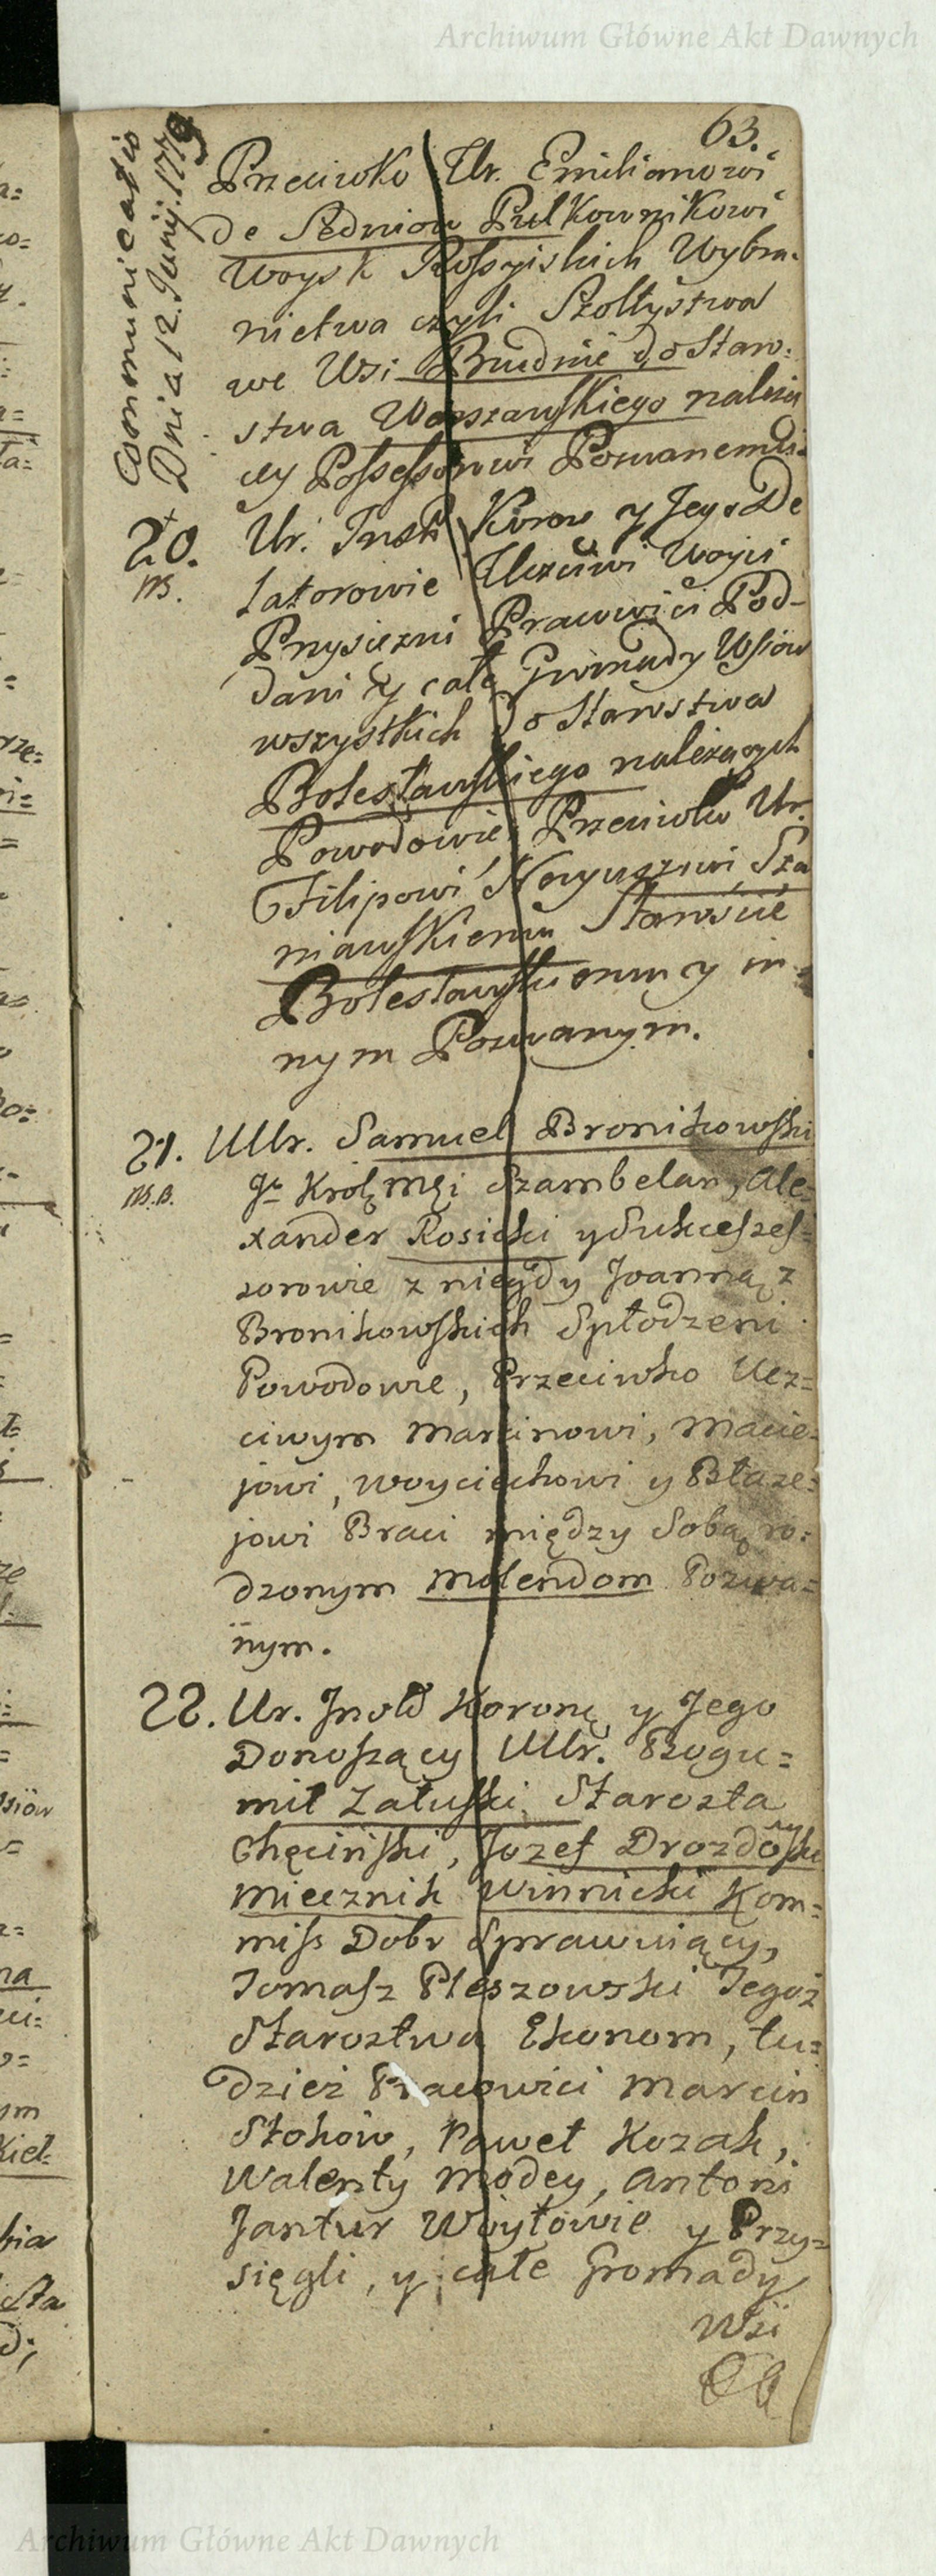 Archiwum Główne Akt Dawnych
63.
Communicatio
Dnia 12. Junij. 1779
Przeciwko Ur. Emilianowi
de Sedniow Pułkownikowi
Woysk Rossyiskich Wybra-
nietwa czyli Szołtystwa
we Wsi Brudnie do Staro:
stwa Warszawskiego należą
cey Possessorowi Pozwanemu.
20.
Ur. Inst Koron y Jego De
latorowie Uczciwi Woyci
Przysiezni Pracowici Pod-
dani y całe Gromady Wsiow
wszystkich do Starostwa
Bolesławskiego należących
Powodowie, Przeciwko Ur.
Filipowi Neyuszowi Sza
niawskiemu Starościе
Bolesławskiemu y in
nym Pozwanym.
21. UUr. Samuel Bronikowski
J. Król. mci Szambelan, Ale-
xander Rosicki y Sukcesses-
sorowie z niegdy Joanną z
Bronikowskich Spłodzeni
Powodowie, Przeciwko Ucz=
ciwym Marcinowi, Macie-
jowi, Woyciechowi y Błaze=
jowi Braci między Sobą ro:
dzonym Molendom Pozwa=
nym.
22. Ur. Inst Koronę y Jego
Donoszący UUr. Bogu=
mił Załuski Starosta
Chęciński, Jozef Drozdowski
Miecznik Winnicki Kom=
miss Dobr Sprawuiący,
Tomasz Pleszowski Tegoż
Starostwa Ekonom, tu=
dzież Pracowici Marcin
Stokow, Paweł Kozak,
Walenty Modey, Antoni
Jantur Woytowie y Przy=
sięgli, y całe Gromady
Wsi
Archiwum Główne Akt Dawnych